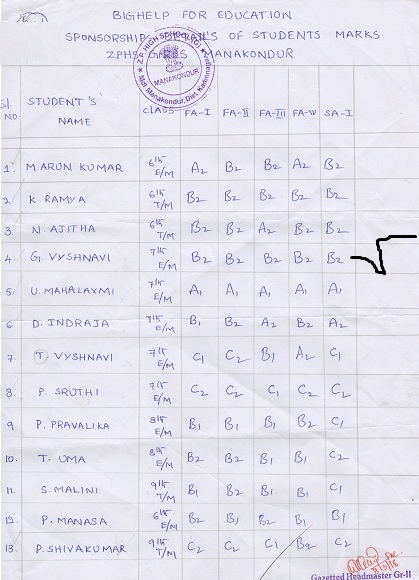 BIGHELP FOR EDUCATION
SPONSORSHIP OF STUDENTS MARKS
ZPHS GIRLS MANAKONDUR
Sl NO. STUDENT'S NAME CLASS FA-I FA-II FA-III FA-IV SA-I
1. M. ARUN KUMAR 6th E/M A2 B2 B2 A2 B2
2. K. RAMYA 6th T/M B2 B2 B2 B2 B2
3. N. AJITHA 6th T/M B2 B2 A2 B2 B2
4. G. VYSHNAVI 7th E/M B2 B2 B2 B2 B2
5. U. MAHALAXMI 7th E/M A1 A1 A1 A1 A1
6. D. INDRAJA 7th E/M B1 B2 A2 B2 A2
7. T. VYSHNAVI 7th E/M C1 C2 B1 A2 C1
8. P. SRUTHI 7th E/M C2 C2 C1 C2 C2
9. P. PRAVALIKA 8th E/M B1 B1 B1 B2 C1
10. T. UMA 8th E/M B2 B2 B1 B1 C2
11. S. MALINI 9th T/M B1 B2 B1 B1 C1
12. P. MANASA 6th E/M B2 B1 B2 B1 B1
13. P. SHIVAKUMAR 9th T/M C2 C2 C1 B2 C2
Z.P. HIGH SCHOOL (G)
MANAKONDUR
Mdl Manakondur, Dist. Karimnagar
Gazetted Headmaster Gr-II